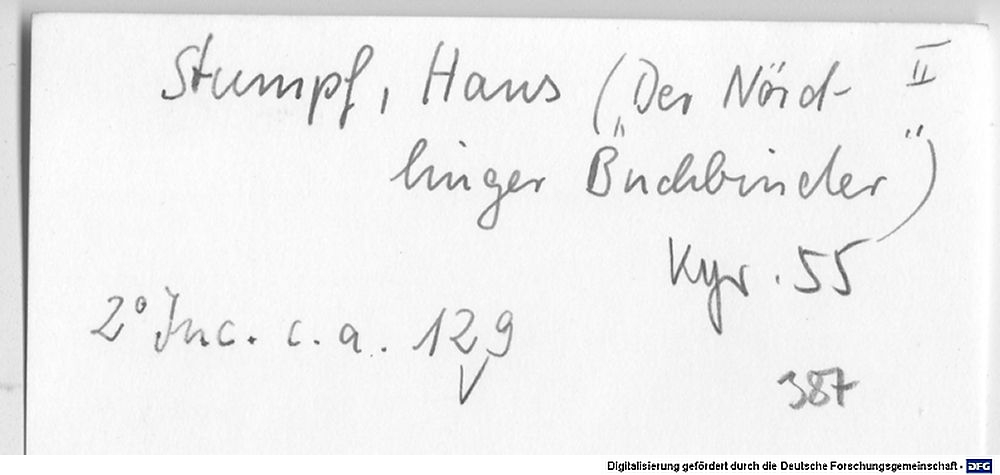 Stumpf, Hans („Der Nörd- II
linger Buchbinder“)
Kyr. 55
2° Inc. c. a. 129
V
387
Digitalisierung gefördert durch die Deutsche Forschungsgemeinschaft - DFG